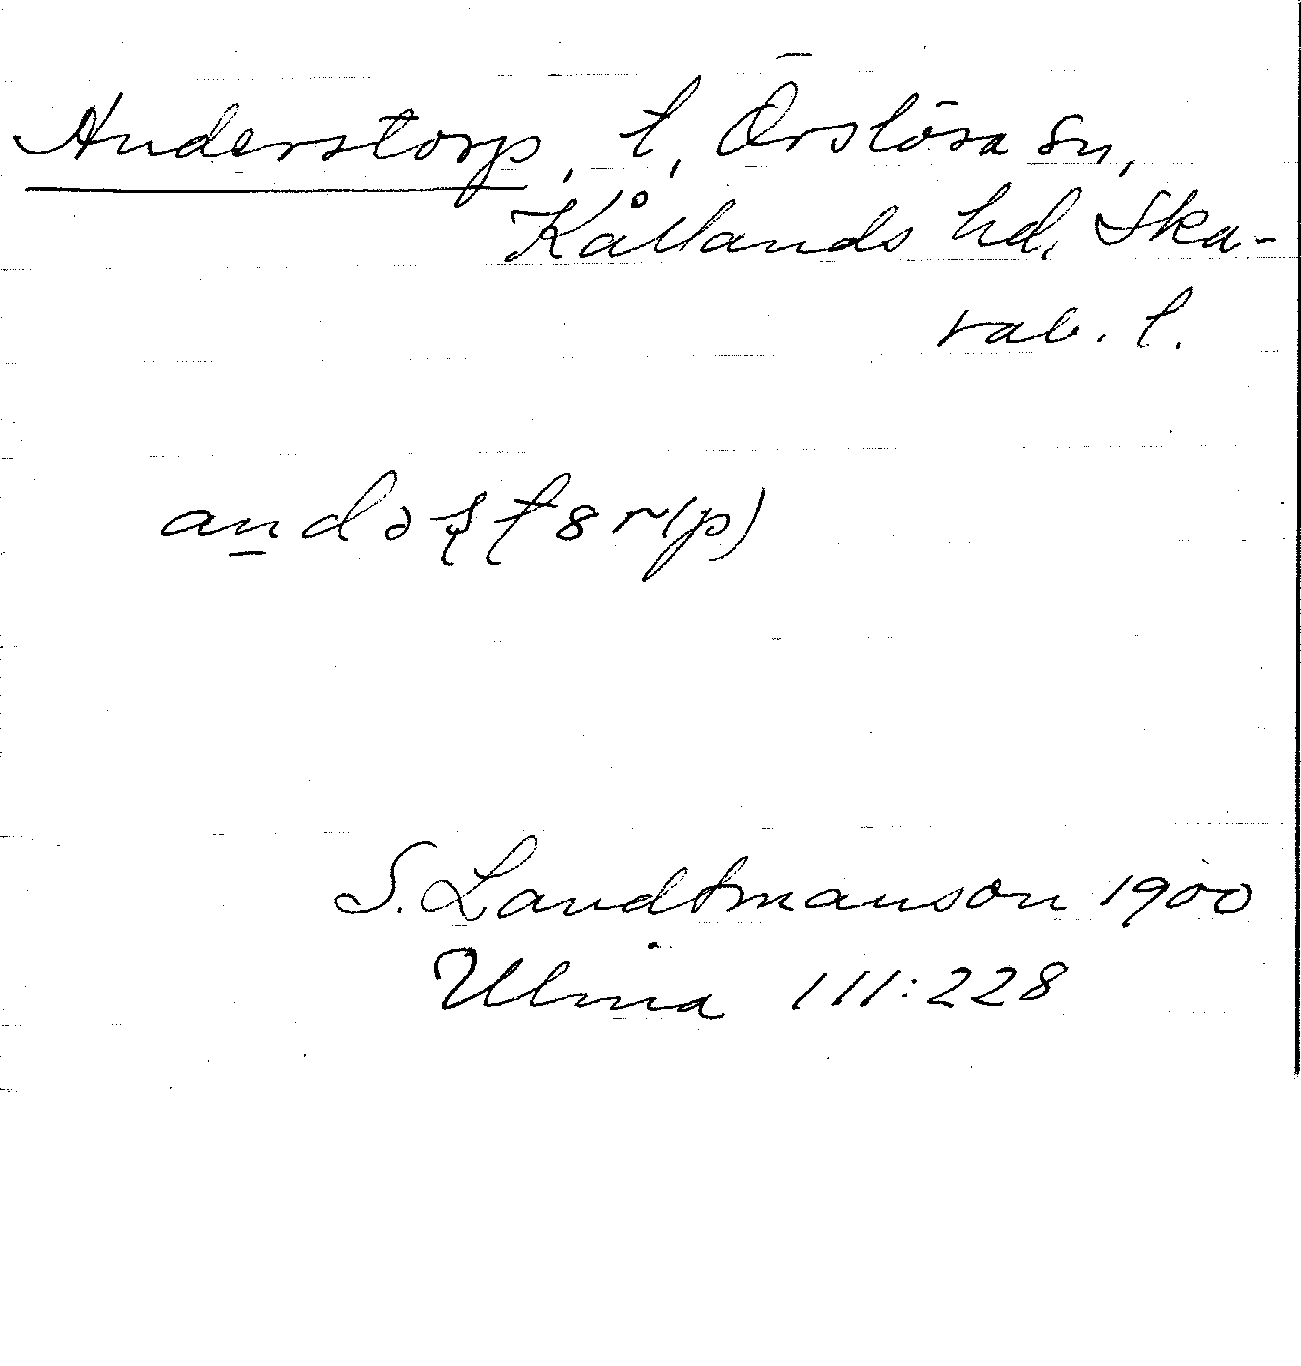 Anderstorp, t, Örslösa sn,
Kållands hd, Ska-
rab. l.
S. Landtmanson 1900
Ulma 111:228